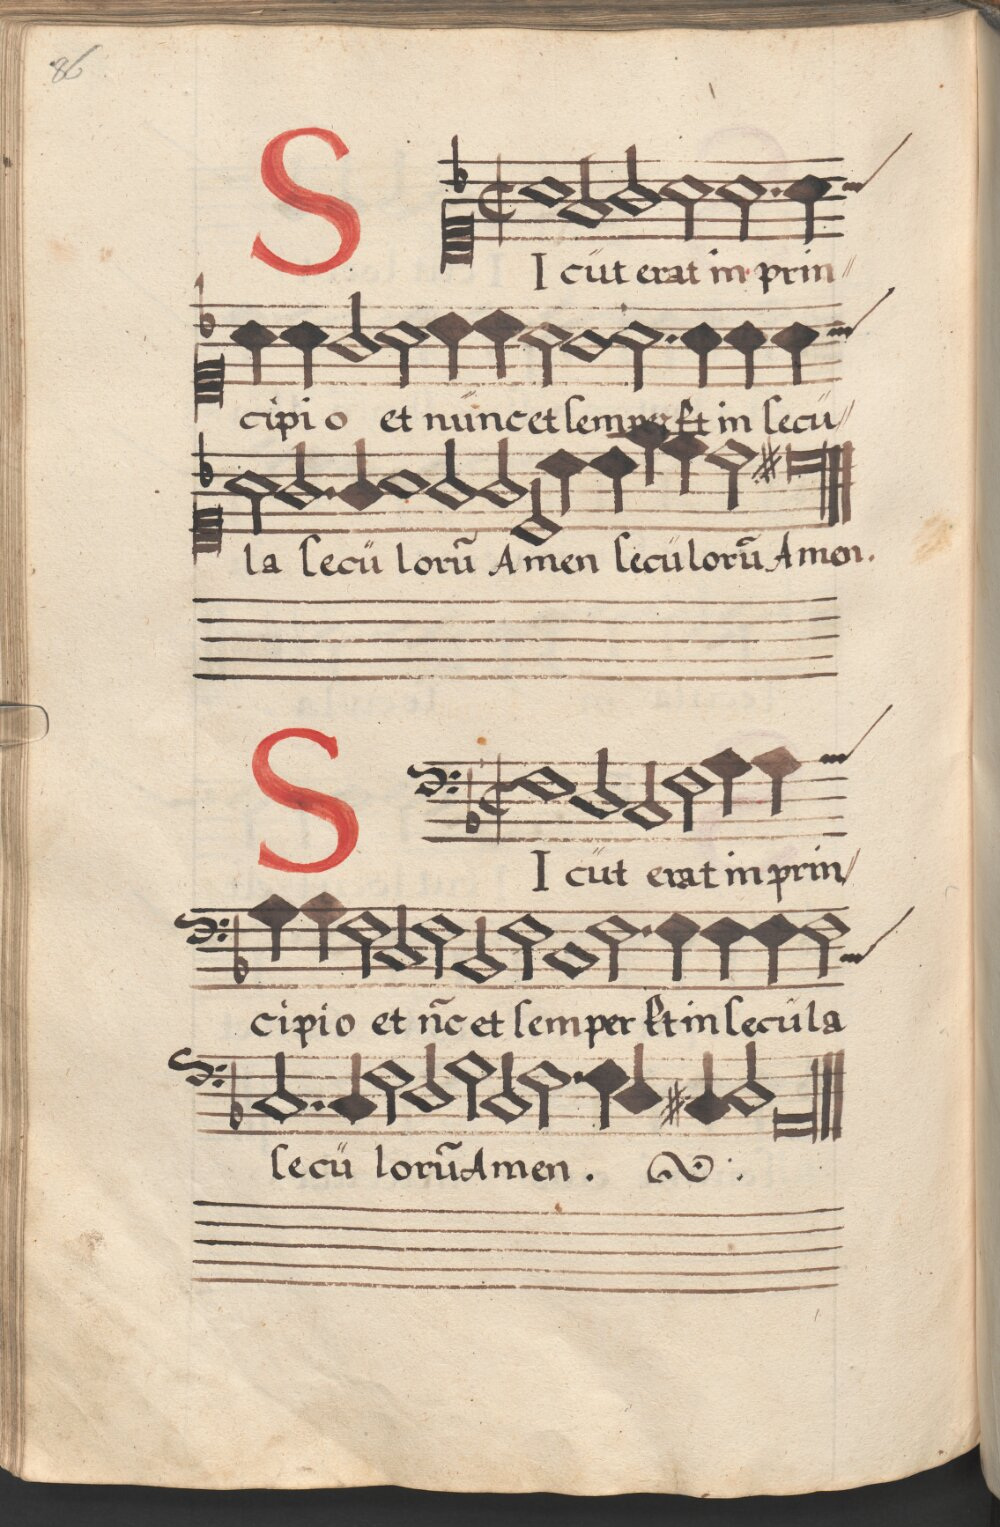 86
S I cüt erat in prin
cipi o et nüncet semper Et in secü
la secü lorũ Amen secülorũ Amen.
S I cüt erat in prin
cipio et ñc et semper Et in secüla
secü lorũ Amen.